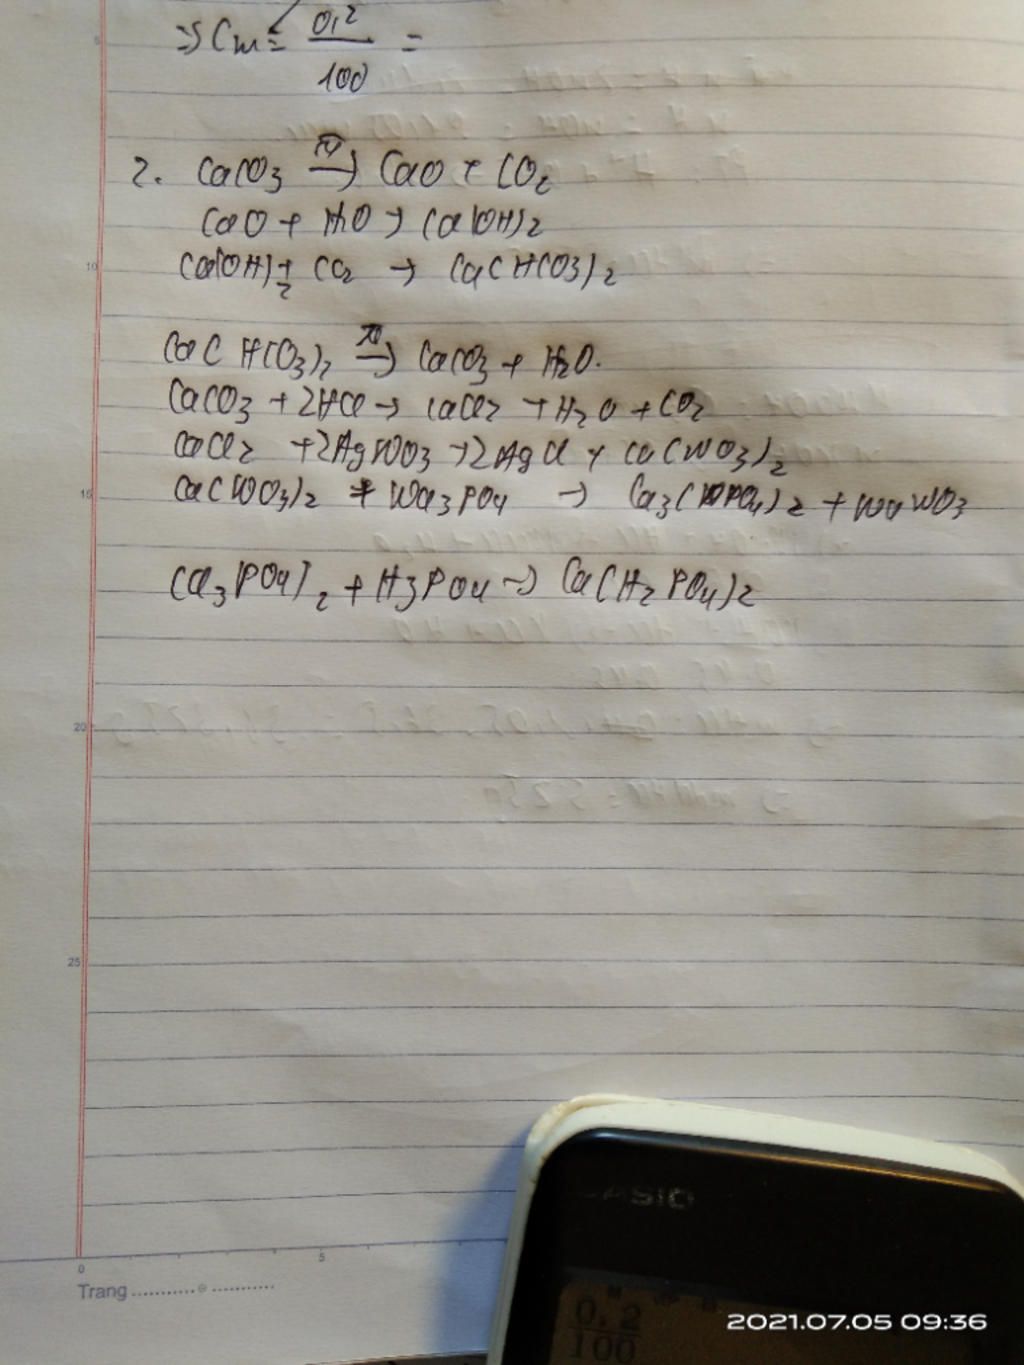 => Cm = 0,2 / 100 =
2. CaCO3 -> CaO + CO2
CaO + H2O -> Ca(OH)2
Ca(OH)2 + CO2 -> Ca(HCO3)2
Ca(HCO3)2 -> CaCO3 + H2O.
CaCO3 + 2HCl -> CaCl2 + H2O + CO2
CaCl2 + 2AgNO3 -> 2AgCl + Ca(NO3)2
Ca(NO3)2 + Na3PO4 -> Ca3(PO4)2 + NaNO3
Ca3(PO4)2 + H3PO4 -> Ca(H2PO4)2
5
10
15
20
25
0
5
Trang
CASIO
0.2
100
2021.07.05 09:36